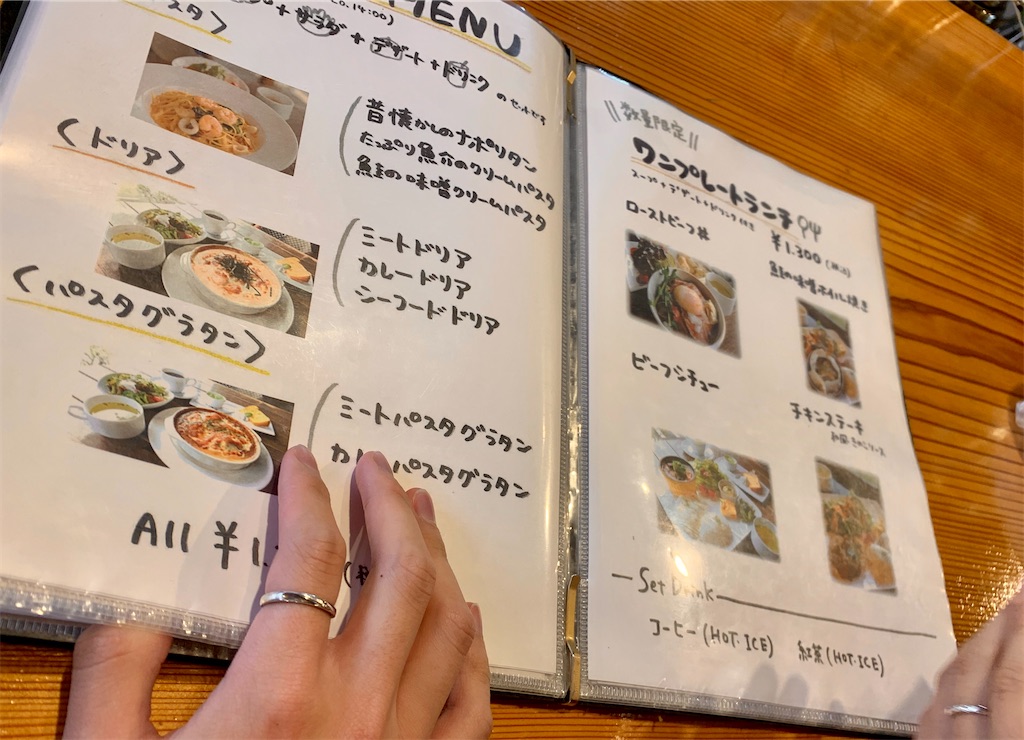 MENU
L.O. 14:00)
パスタ〉
+サラダ+デザート+ドリンクのセットです
昔懐かしのナポリタン
たっぷり魚介のクリームパスタ
鮭の味噌クリームパスタ
〈ドリア〉
ミートドリア
カレードリア
シーフードドリア
〈パスタグラタン〉
ミートパスタグラタン
カレーパスタグラタン
All ¥1.
\\数量限定//
ワンプレートランチ
スープ+デザート+ドリンク付き
¥1.300(税込)
ローストビーフ丼
鮭の味噌ホイル焼き
ビーフシチュー
チキンステーキ
ーSet Drinkー
コーヒー(HOT・ICE) 紅茶(HOT・ICE)